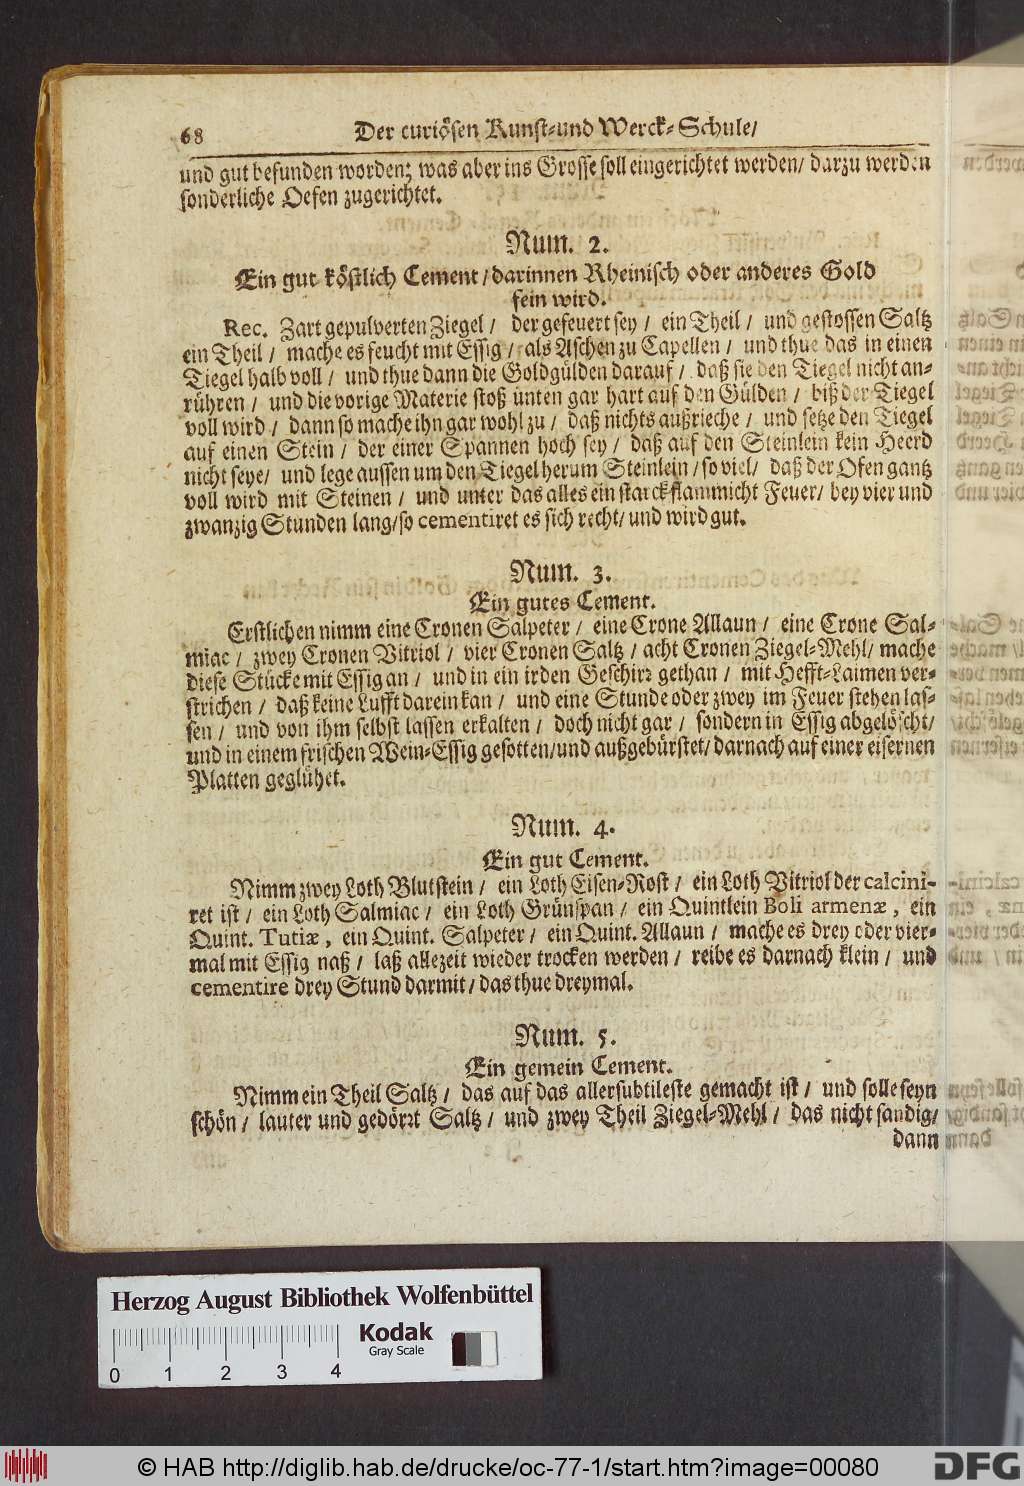 68 Der curiösen Kunst-und Werck-Schule/
und gut befunden worden; was aber ins Grosse soll eingerichtet werden/ darzu werden
sonderliche Oefen zugerichtet.
Num. 2.
Ein gut köstlich Cement/darinnen Rheinisch oder anderes Gold
fein wird.
Rec. Zart gepulverten Ziegel / der gefeuert sey / ein Theil / und gestossen Saltz
ein Theil / mache es feucht mit Essig / als Aschen zu Capellen / und thue das in einen
Tiegel halb voll / und thue dann die Goldgülden darauf / daß sie den Tiegel nicht an-
rühren / und die vorige Materie stoß unten gar hart auf den Gülden / biß der Tiegel
voll wird / dann so mache ihn gar wohl zu / daß nichts außrieche / und setze den Tiegel
auf einen Stein / der einer Spannen hoch sey / daß auf den Steinlein kein Heerd
nicht seye/ und lege aussen um den Tiegel herum Steinlein/so viel/ daß der Ofen gantz
voll wird mit Steinen / und unter das alles ein starck flammicht Feuer/ bey vier und
zwanzig Stunden lang/so cementiret es sich recht/ und wird gut.
Num. 3.
Ein gutes Cement.
Erstlichen nimm eine Cronen Salpeter / eine Crone Allaun / eine Crone Sal-
miac / zwey Cronen Vitriol / vier Cronen Saltz / acht Cronen Ziegel-Mehl/ mache
diese Stücke mit Essig an / und in ein irden Geschirr gethan / mit Hefft-Laimen ver-
strichen / daß keine Lufft darein kan / und eine Stunde oder zwey im Feuer stehen las-
sen / und von ihm selbst lassen erkalten / doch nicht gar / sondern in Essig abgelöscht/
und in einem frischen Wein-Essig gesotten/und außgebürstet/ darnach auf einer eisernen
Platten geglühet.
Num. 4.
Ein gut Cement.
Nimm zwey Loth Blutstein / ein Loth Eisen-Rost / ein Loth Vitriol der calcini-
ret ist / ein Loth Salmiac / ein Loth Grünspan / ein Quintlein Boli armenæ, ein
Quint. Tutiæ, ein Quint. Salpeter / ein Quint. Allaun / mache es drey oder vier-
mal mit Essig naß / laß allezeit wieder trocken werden / reibe es darnach klein / und
cementire drey Stund darmit/ das thue dreymal.
Num. 5.
Ein gemein Cement.
Nimm ein Theil Saltz / das auf das allersubtileste gemacht ist / und solle seyn
schön / lauter und gedörrt Saltz / und zwey Theil Ziegel-Mehl / das nicht sandig/
dann
Herzog August Bibliothek Wolfenbüttel
Kodak
Gray Scale
0 1 2 3 4
© HAB http://diglib.hab.de/drucke/oc-77-1/start.htm?image=00080
DFG